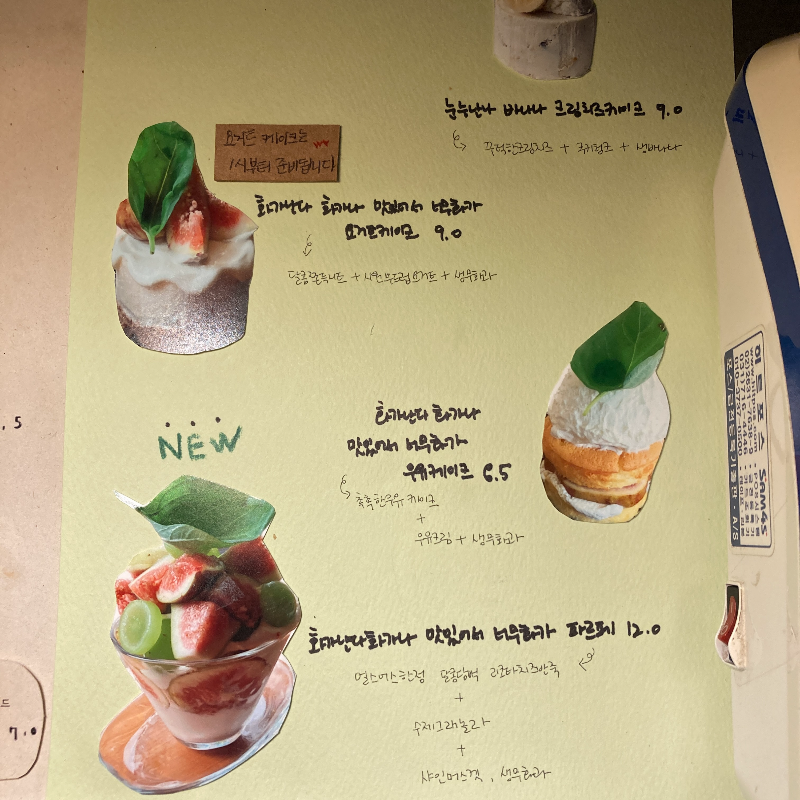 눈누난나 바나나 크림치즈케이크 9.0
꾸덕한크림치즈 + 쿠키링크 + 생바나나
요거트 케이크는
1시부터 준비됩니다
화가난다 화가나 맛있어서 너무화가
요거트케이크 9.0
달콤쫀득니트 + 시원부드럽요거트 + 생무화과
NEW
화가난다 화가나
맛있어서 너무화가
우유케이크 6.5
촉촉한우유케이크
+
우유크림 + 생무화과
화가난다화가나 맛있어서 너무화가 파르페 12.0
달콤담백 리코타치즈반죽
+
수제그래놀라
+
샤인머스켓, 생무화과
.5
드
7.0
하트포스 SAM4S